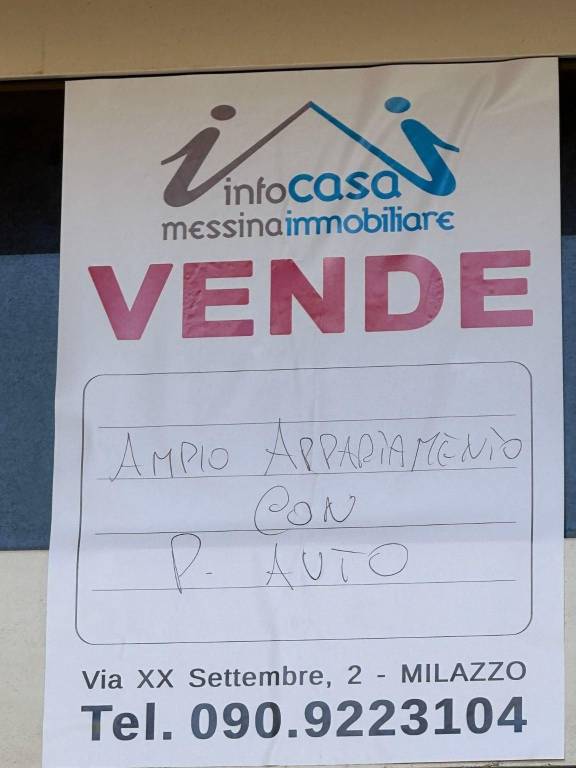 infocasa
messinaimmobiliare
VENDE
AMPIO APPARTAMENTO
CON
P. AUTO
Via XX Settembre, 2 - MILAZZO
Tel. 090.9223104